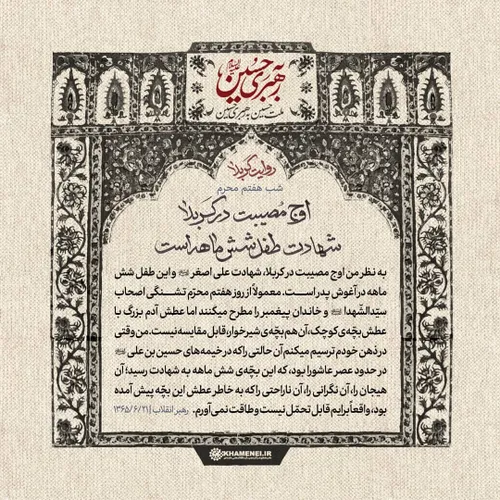 به رهبری حسین
ملت حسین به رهبری حسین
روایت کربلا
شب هفتم محرم
اوج مصیبت در کربلا
شهادت طفل شش ماهه است
به نظر من اوج مصیبت در کربلا، شهادت علی اصغر و این طفل شش
ماهه در آغوش پدر است. معمولاً از روز هفتم محرّم تشنگی اصحاب
سیّدالشّهدا و خاندان پیغمبر را مطرح میکنند اما عطش آدم بزرگ با
عطش بچّه‌ی کوچک، آن هم بچّه‌ی شیرخوار، قابل مقایسه نیست. من وقتی
در ذهن خودم ترسیم میکنم آن حالتی را که در خیمه‌های حسین بن علی
در حدود عصر عاشورا بود، که این بچّه‌ی شش ماهه به شهادت رسید؛ آن
هیجان را، آن نگرانی را، آن ناراحتی را که به خاطر عطش این بچّه پیش آمده
بود، واقعاً برایم قابل تحمّل نیست و طاقت نمی‌آورم. رهبر انقلاب | ۱۳۶۵/۶/۲۱
KHAMENEI.IR